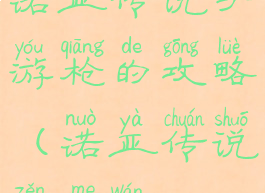 诺亚传说手
yóu qiāng de gōng lüè
游枪的攻略
nuò yà chuán shuō
（诺亚传说
zěn me wán